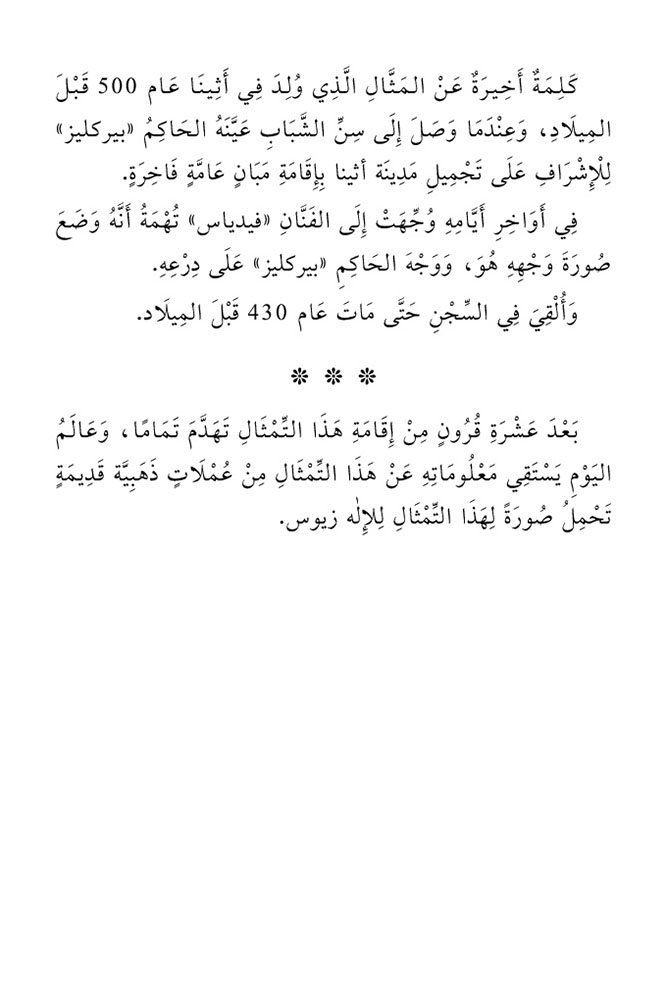 كَلِمَةٌ أَخِيرَةٌ عَنْ المَثَّالِ الَّذِي وُلِدَ فِي أَثِينَا عَام 500 قَبْلَ
المِيلَادِ، وَعِنْدَمَا وَصَلَ إِلَى سِنِّ الشَّبَابِ عَيَّنَهُ الحَاكِمُ «بيركليز»
لِلْإِشْرَافِ عَلَى تَجْمِيلِ مَدِينَة أثينا بِإِقَامَةِ مَبَانٍ عَامَّةٍ فَاخِرَةٍ.
فِي أَوَاخِرِ أَيَّامِهِ وُجِّهَتْ إِلَى الفَنَّانِ «فيدياس» تُهْمَةُ أَنَّهُ وَضَعَ
صُورَةَ وَجْهِهِ هُوَ، وَوَجْهَ الحَاكِمِ «بيركليز» عَلَى دِرْعِهِ.
وَأُلْقِيَ فِي السِّجْنِ حَتَّى مَاتَ عَام 430 قَبْلَ المِيلَاد.
❊ ❊ ❊
بَعْدَ عَشْرَةِ قُرُونٍ مِنْ إِقَامَةِ هَذَا التِّمْثَالِ تَهَدَّمَ تَمَامًا، وَعَالَمُ
اليَوْمِ يَسْتَقِي مَعْلُومَاتِهِ عَنْ هَذَا التِّمْثَالِ مِنْ عُمْلَاتٍ ذَهَبِيَّة قَدِيمَةٍ
تَحْمِلُ صُورَةً لِهَذَا التِّمْثَالِ لِلإِلٰه زيوس.